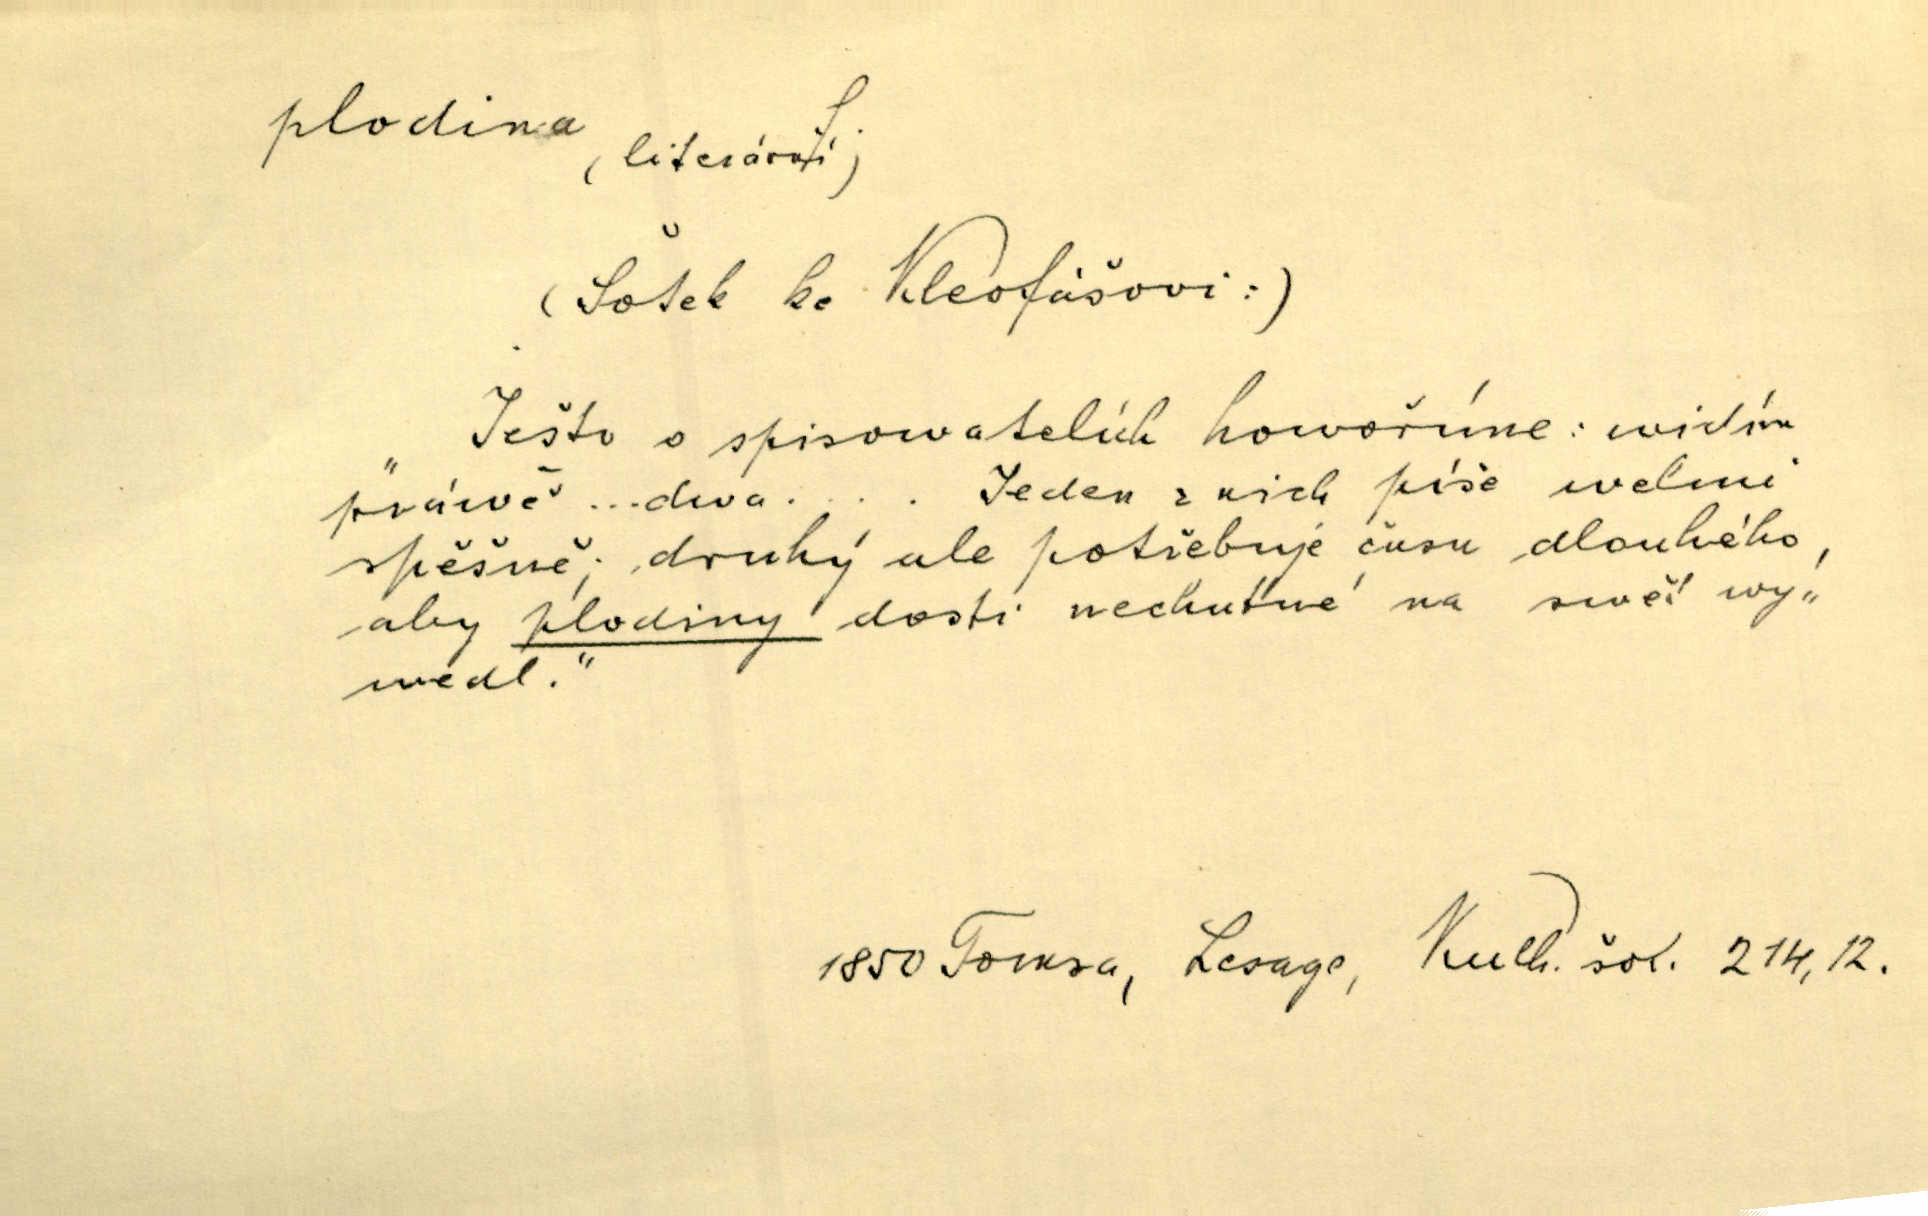 plodina
(literární)
(Šotek ke Kleofášovi:)
„Ješto o spisowatelích howoříme: widím
práwě ... dwa . . . Jeden z nich píše welmi
spěšně; druhý ale potřebuje času dlouhého,
aby plodiny dosti nechutné na swět wy„
wedl.“
1850 Tomsa, Lesage, Kulh. šot. 214, 12.